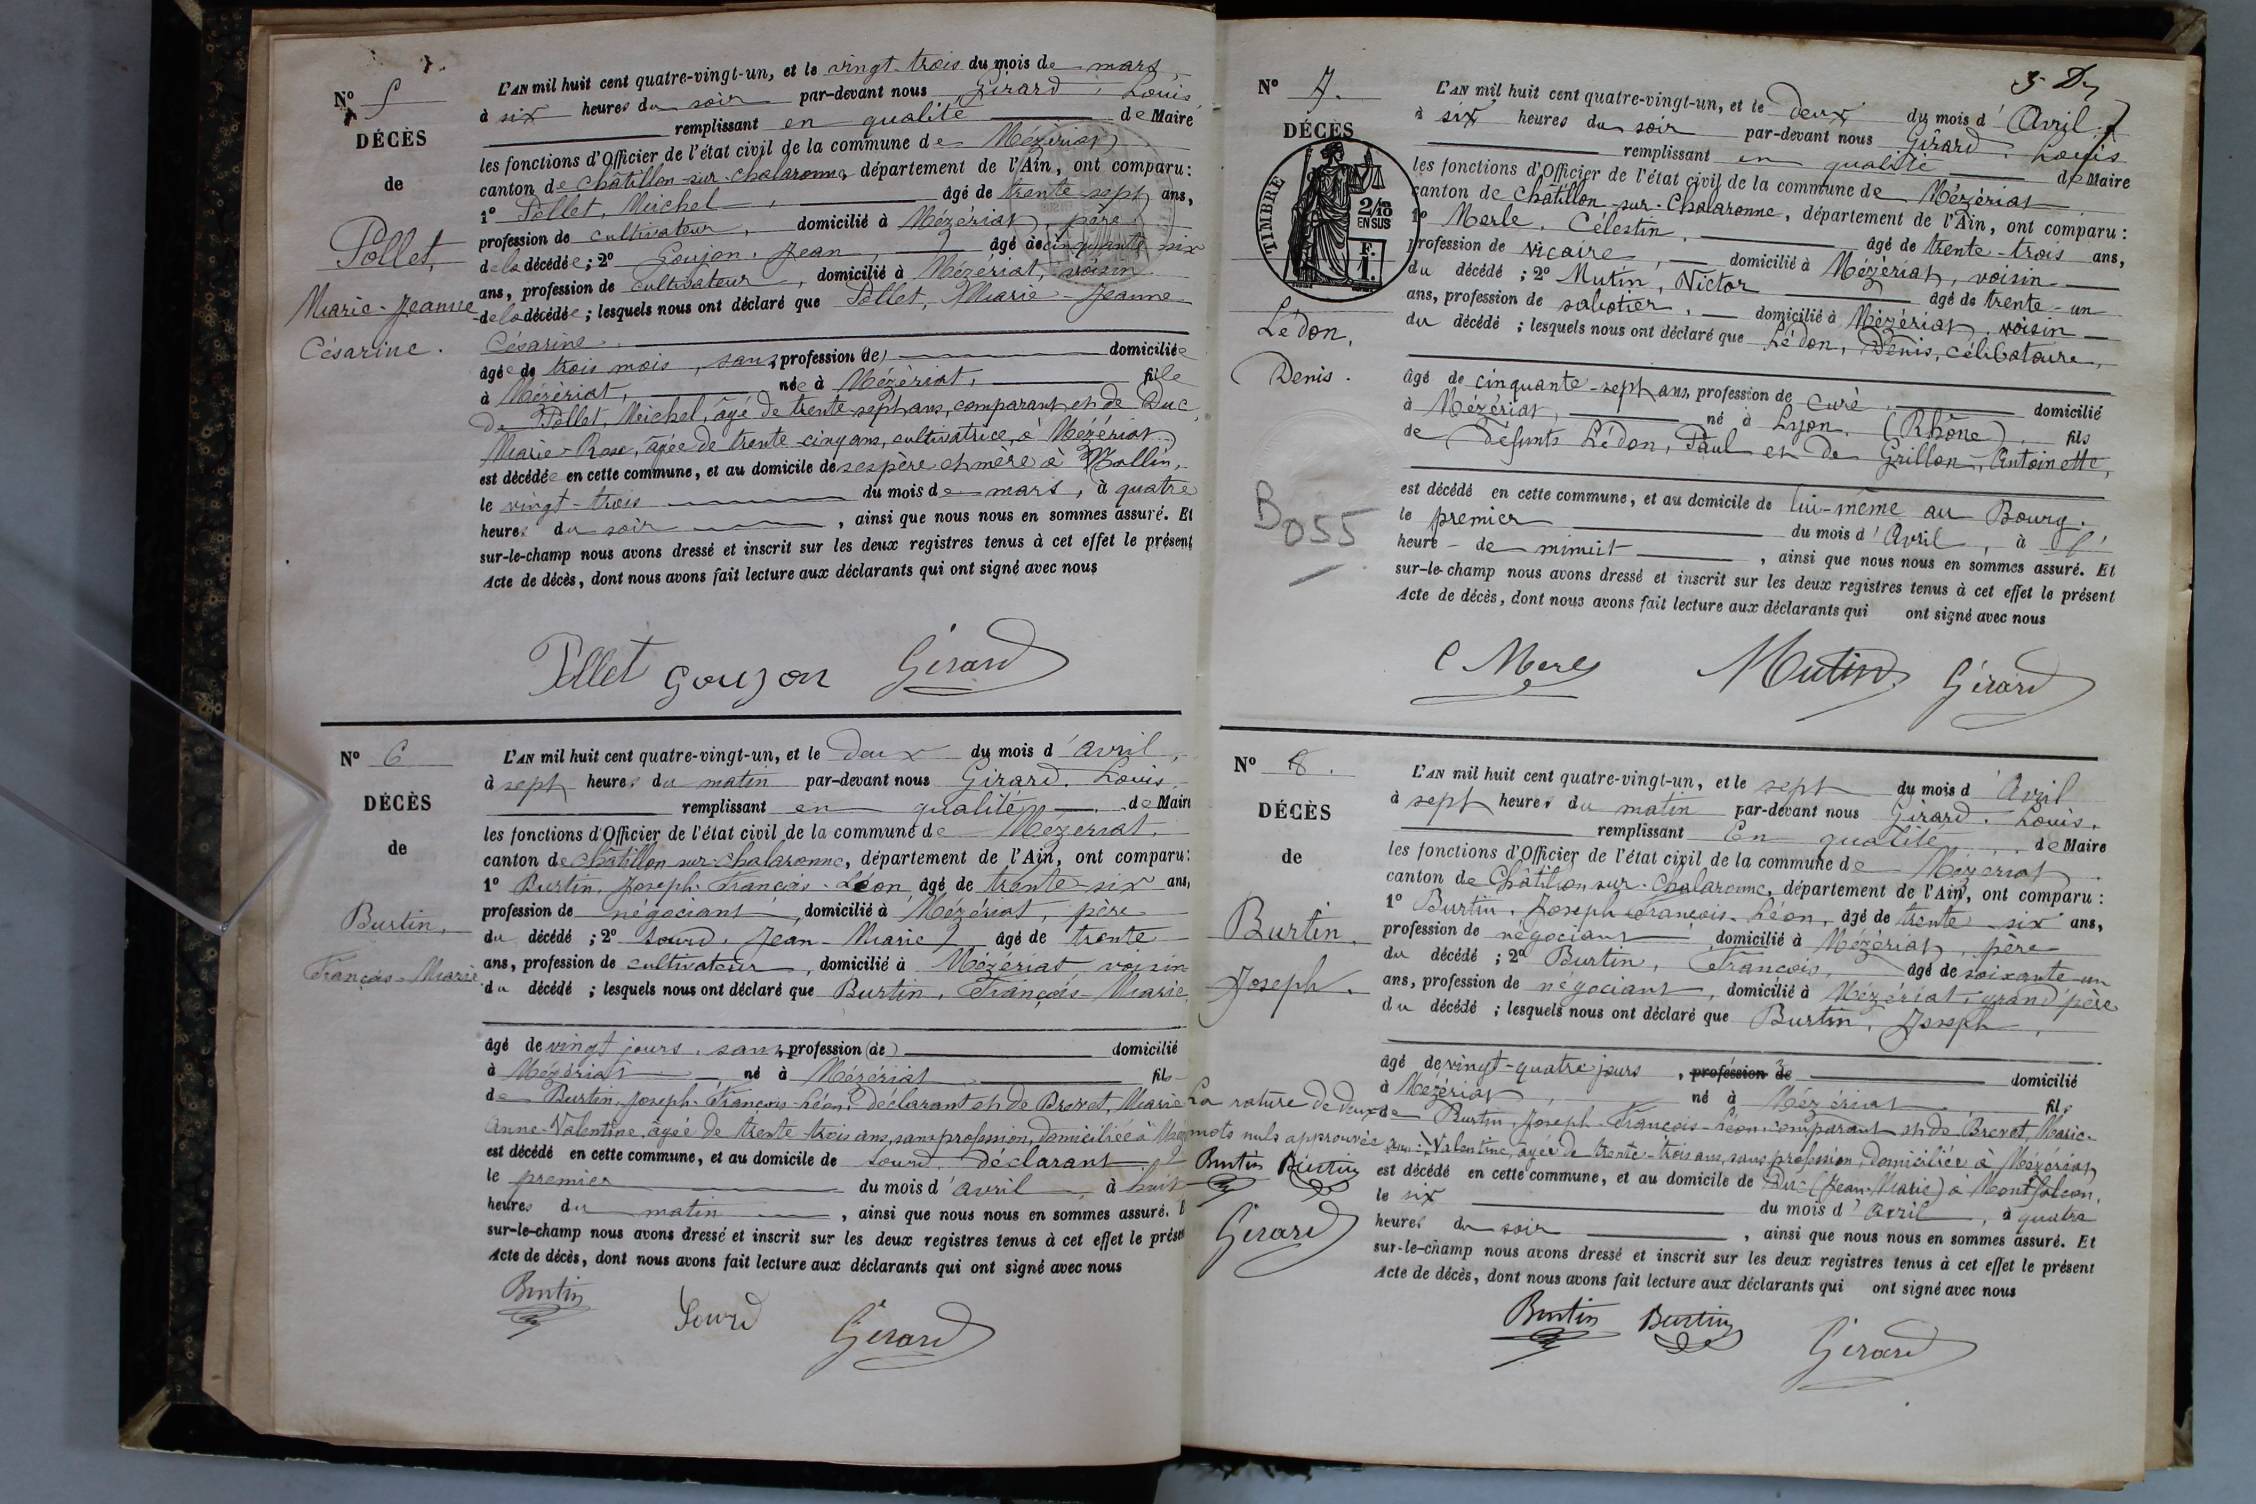 N° 5
DÉCÈS
de
Pollet,
Marie-Jeanne
Césarine.
L'AN mil huit cent quatre-vingt-un, et le vingt-trois du mois de mars,
à six heures du soir par-devant nous Girard, Louis
remplissant en qualité de Maire
les fonctions d'Officier de l'état civil de la commune de Mézériat
canton de Châtillon-sur-Chalaronne, département de l'Ain, ont comparu:
1° Pollet, Michel, âgé de trente-sept ans,
profession de cultivateur, domicilié à Mézériat, père
de la décédée; 2° Goujon, Jean, âgé de cinquante-six
ans, profession de cultivateur, domicilié à Mézériat, voisin
de la décédée; lesquels nous ont déclaré que Pollet, Marie-Jeanne
Césarine.
âgée de trois mois, sans profession (de) domiciliée
à Mézériat, née à Mézériat, fille
de Pollet, Michel, âgé de trente-sept ans, comparant et de Duc,
Marie-Rose, âgée de trente-cinq ans, cultivatrice, à Mézériat
est décédée en cette commune, et au domicile de ses père et mère à Mollin,
le vingt-trois du mois de mars, à quatre
heures du soir, ainsi que nous nous en sommes assuré. Et
sur-le-champ nous avons dressé et inscrit sur les deux registres tenus à cet effet le présent
Acte de décès, dont nous avons fait lecture aux déclarants qui ont signé avec nous
Pollet Goujon Girard
N° 6
DÉCÈS
de
Burtin,
François-Marie
L'AN mil huit cent quatre-vingt-un, et le deux du mois d'avril,
à sept heures du matin par-devant nous Girard, Louis
remplissant en qualité de Maire
les fonctions d'Officier de l'état civil de la commune de Mézériat.
canton de Châtillon-sur-Chalaronne, département de l'Ain, ont comparu:
1° Burtin, Joseph-François-Léon âgé de trente-six ans,
profession de négociant, domicilié à Mézériat, père
du décédé; 2° Sourd, Jean-Marie âgé de trente
ans, profession de cultivateur, domicilié à Mézériat, voisin
du décédé; lesquels nous ont déclaré que Burtin, François-Marie
âgé de vingt jours, sans profession (de) domicilié
à Mézériat né à Mézériat fils
de Burtin, Joseph-François-Léon, déclarant et de Brevet, Marie
Anne-Valentine, âgée de trente-trois ans, sans profession, domiciliée à
est décédé en cette commune, et au domicile de Sourd, déclarant
le premier du mois d'avril, à huit
heures du matin, ainsi que nous nous en sommes assuré.
sur-le-champ nous avons dressé et inscrit sur les deux registres tenus à cet effet le présent
Acte de décès, dont nous avons fait lecture aux déclarants qui ont signé avec nous
Burtin Sourd Girard
N° 7.
DÉCÈS
TIMBRE
2/10
EN SUS
F.
1.
Lédon,
Denis.
B055
L'AN mil huit cent quatre-vingt-un, et le deux du mois d'Avril
à six heures du soir par-devant nous Girard, Louis
remplissant en qualité de Maire
les fonctions d'Officier de l'état civil de la commune de Mézériat
canton de Châtillon-sur-Chalaronne, département de l'Ain, ont comparu:
1° Merle, Célestin, âgé de trente-trois ans,
profession de vicaire, domicilié à Mézériat, voisin
du décédé; 2° Mutin, Victor âgé de trente-un
ans, profession de sabotier, domicilié à Mézériat, voisin
du décédé; lesquels nous ont déclaré que Lédon, Denis, célibataire,
âgé de cinquante-sept ans, profession de curé, domicilié
à Mézériat, né à Lyon, (Rhône), fils
de défunts Lédon, Paul et de Grillon, Antoinette,
est décédé en cette commune, et au domicile de lui-même au Bourg.
le premier du mois d'Avril, à l'
heure de minuit, ainsi que nous nous en sommes assuré. Et
sur-le-champ nous avons dressé et inscrit sur les deux registres tenus à cet effet le présent
Acte de décès, dont nous avons fait lecture aux déclarants qui ont signé avec nous
C Merle Mutin Girard
N° 8.
DÉCÈS
de
Burtin,
Joseph.
La rature de deux
mots nuls approuvée
Burtin Burtin
Girard
L'AN mil huit cent quatre-vingt-un, et le sept du mois d'Avril
à sept heures du matin par-devant nous Girard, Louis.
remplissant En qualité de Maire
les fonctions d'Officier de l'état civil de la commune de Mézériat
canton de Châtillon-sur-Chalaronne, département de l'Ain, ont comparu:
1° Burtin, Joseph-François-Léon, âgé de trente-six ans,
profession de négociant domicilié à Mézériat, père
du décédé; 2° Burtin, François, âgé de soixante-un
ans, profession de négociant, domicilié à Mézériat, grand père
du décédé; lesquels nous ont déclaré que Burtin, Joseph,
âgé de vingt-quatre jours, profession de domicilié
à Mézériat, né à Mézériat fils
de Burtin, Joseph-François-Léon, comparant et de Brevet, Marie-
Anne-Valentine, âgée de trente-trois ans, sans profession, domiciliée à Mézériat
est décédé en cette commune, et au domicile de Duc (Jean-Marie) à Montfalcon,
le six du mois d'avril, à quatre
heures du soir, ainsi que nous nous en sommes assuré. Et
sur-le-champ nous avons dressé et inscrit sur les deux registres tenus à cet effet le présent
Acte de décès, dont nous avons fait lecture aux déclarants qui ont signé avec nous
Burtin Burtin Girard